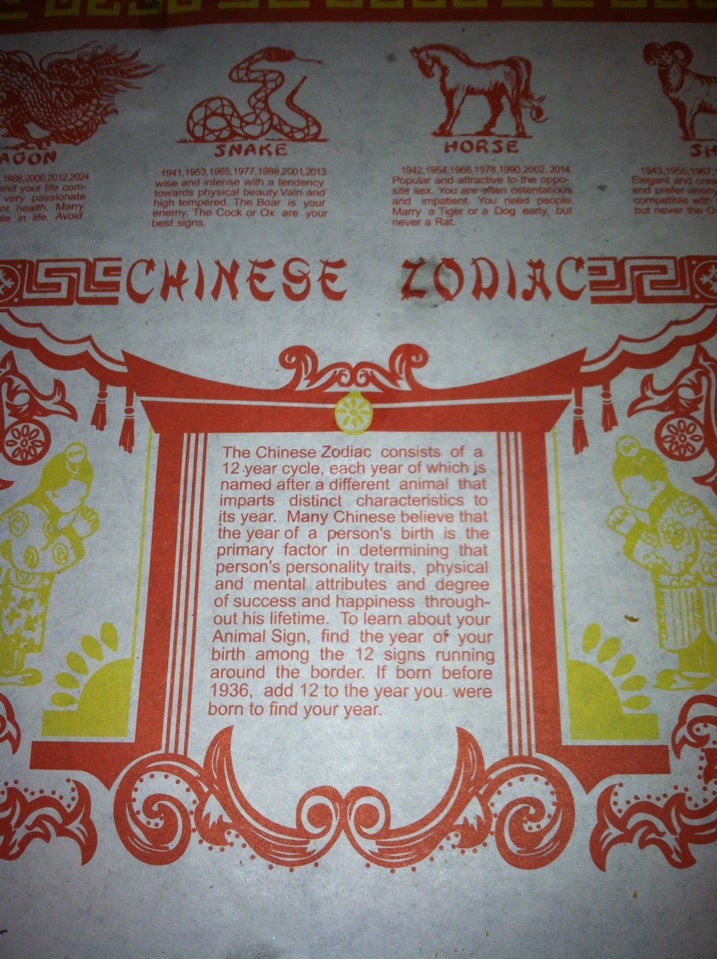 AGON
1988,2000,2012,2024
and your life com-
very passionate
nt health. Marry
te in life. Avoid
SNAKE
1941,1953,1965,1977,1989,2001,2013
wise and intense with a tendency
towards physical beauty. Vain and
high tempered. The Boar is your
enemy. The Cock or Ox are your
best signs.
HORSE
1942,1954,1966,1978,1990,2002,2014
Popular and attractive to the oppo-
site sex. You are often ostentatious
and impatient. You need people.
Marry a Tiger or a Dog early, but
never a Rat.
SH
1943,1955,1967,
Elegant and crea
and prefer anon
compatible with
but never the O
CHINESE ZODIAC
The Chinese Zodiac consists of a
12 year cycle, each year of which is
named after a different animal that
imparts distinct characteristics to
its year. Many Chinese believe that
the year of a person's birth is the
primary factor in determining that
person's personality traits, physical
and mental attributes and degree
of success and happiness through-
out his lifetime. To learn about your
Animal Sign, find the year of your
birth among the 12 signs running
around the border. If born before
1936, add 12 to the year you were
born to find your year.